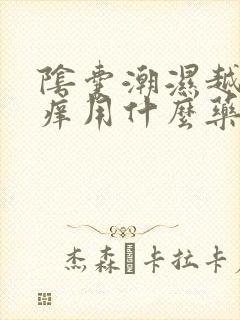 陰囊潮濕越
痒用什麼藥
杰森 卡拉卡